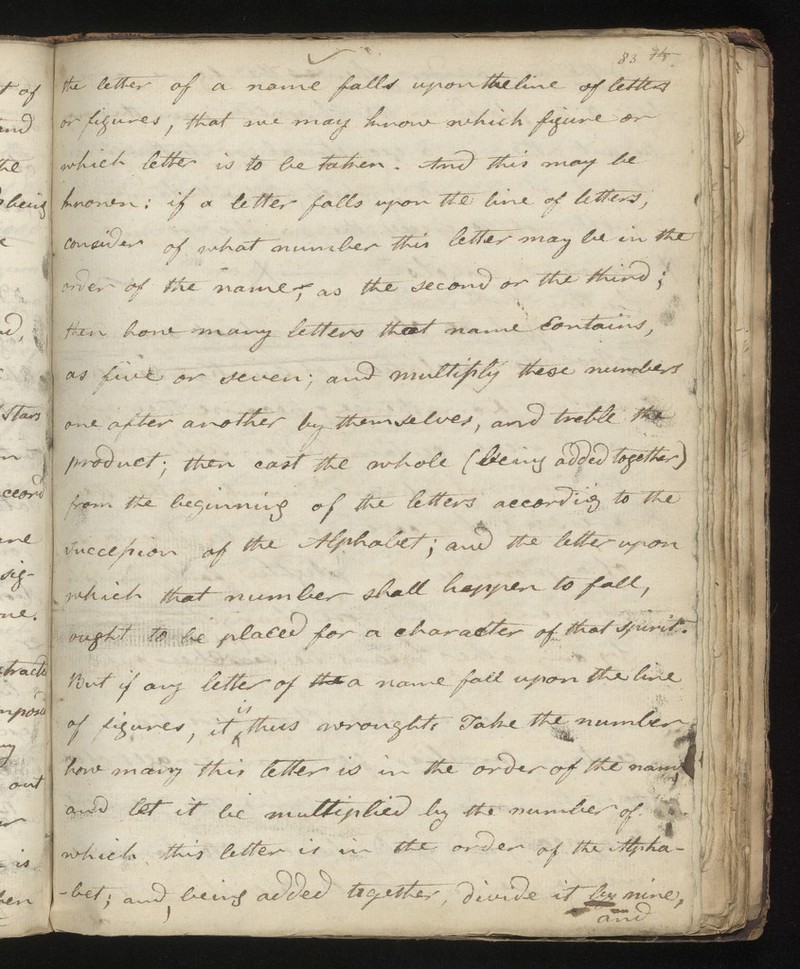 83
the letter of a name falls upon the line of letters
or figures, that we may know which figure or
which letter is to be taken. And this may be
known: if a letter falls upon the line of letters,
consider of what number this letter may be in the
order of the name, as the second or the third;
then how many letters that name contains,
as five or seven; and multiply these numbers
one after another by themselves, and treble the
product; then cast the whole (being added together)
from the beginning of the letters according to the
succession of the Alphabet; and the letter upon
which that number shall happen to fall,
ought to be placed for a character of that spirit.
But if any letter of a name fall upon the line
of figures, it is thus wrought. Take the number
how many this letter is in the order of the name,
and let it be multiplied by the number of
which this letter is in the order of the Alpha-
-bet; and, being added together, divide it by nine,
and